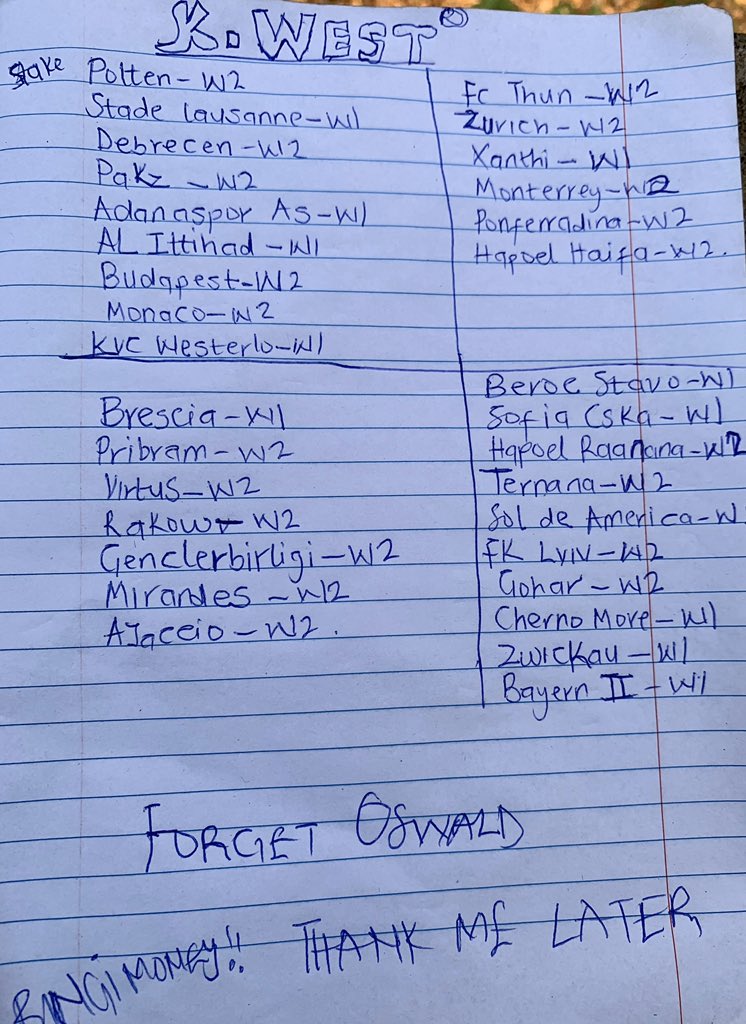 K. WEST ®
Stake
Polten - W2
Stade Lausanne - W1
Debrecen - W2
Pakz - W2
Adanaspor As - W1
AL Ittihad - W1
Budapest - W2
Monaco - W2
KVC Westerlo - W1
Fc Thun - W2
Zurich - W2
Xanthi - W1
Monterrey - W2
Ponferradina - W2
Hapoel Haifa - W2.
Brescia - W1
Pribram - W2
Virtus - W2
Rakow - W2
Genclerbirligi - W2
Mirandes - W2
AJaccio - W2.
Beroe Stavo - W1
Sofia Cska - W1
Hapoel Raanana - W2
Ternana - W2
Sol de America - W
FK Lviv - W2
Gohar - W2
Cherno More - W1
Zwickau - W1
Bayern II - W1
FORGET OSWALD
BINGIMONEY!! THANK ME LATER